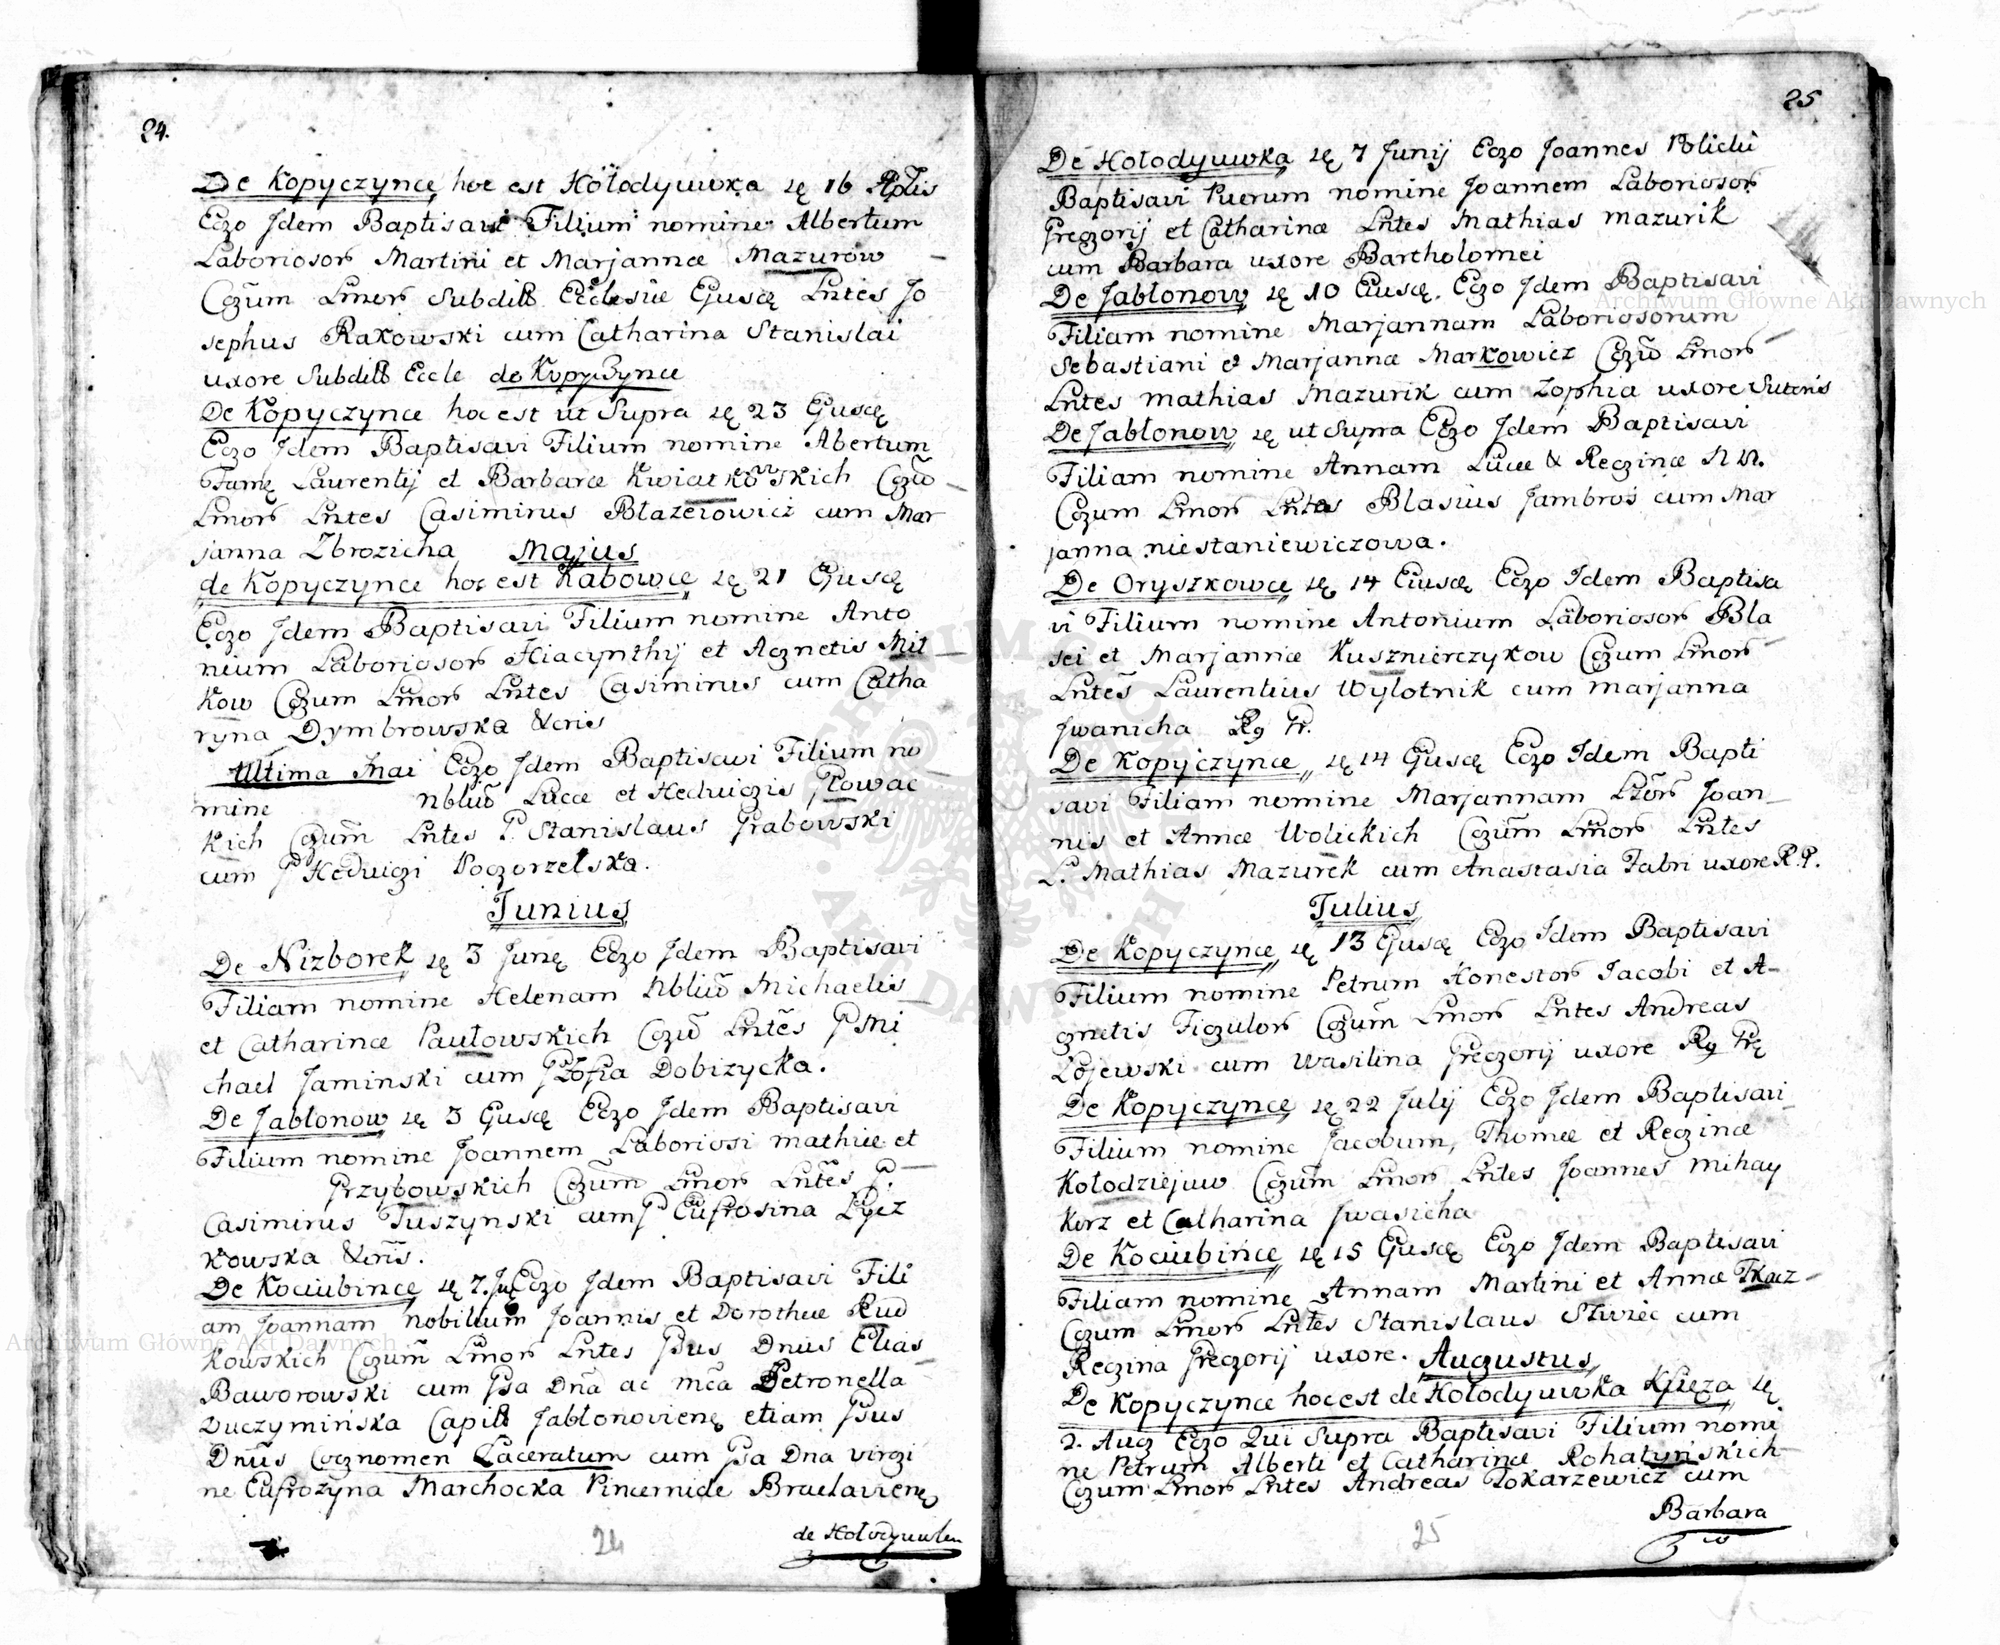 24.
De Kopyczynce hoc est Hołodyuwka 16 Aplis
Ego Idem Baptisavi Filium nomine Albertum
Laboriosor Martini et Marjannæ Mazurow
Cgzum Lmor Subdit Ecclesiæ Ejusdę Lntes Jo
sephus Rakowski cum Catharina Stanislai
uxore Subdit Eccle de Kopyczynce
De Kopyczynce hoc est ut Supra 23 Ejusdę
Ego Idem Baptisavi Filium nomine Abertum
Laurentij et Barbaræ Kwiatkowskich
Lmor Lntes Casimirus Błazeiowicz cum Mar
janna Zbrozicha Majus
de Kopyczynce hoc est Kabowce 21 Ejusdę
Ego Idem Baptisavi Filium nomine Anto
nium Laboriosor Hiacynthij et Agnetis Mit
kow Cgzum Lmor Lntes Casimirus cum Catha
ryna Dymbrowska
Ultima Mai Ego Idem Baptisavi Filium no
mine Nbliu Lucæ et Hedvigis Głowac
kich Cgzum Lntes P. Stanislaus Grabowski
cum P Hedvigi Pogorzelska.
Junius
De Nizborek 3 Junę Ego Idem Baptisavi
Filiam nomine Helenam Nbliu Michaelis
et Catharinæ Pautowskich Cgzu Lntes P Mi
chael Jaminski cum P Zofia Dobizycka.
De Jabłonow 3 Ejusdę Ego Idem Baptisavi
Filium nomine Joannem Laboriosi mathiæ et
Grzybowskich Cgzum Lmor Lntes P.
Casimirus Tuszynski cum P Eufrosina
kowska
De Kociubince 7. Ego Idem Baptisavi Fili
am Joannam nobilium Joannis et Dorotheæ Rud
kowskich Cgzum Lmor Lntes Gsus Dnus Elias
Baworowski cum Gsa Dna ac Mca Petronella
Duczymińska Capit Jabłonovienę etiam Gsus
Dnus Cognomen Laceratum cum Gsa Dna virgi
ne Eufrozyna Marchocka Pincernide Braclavienę
de Hołodyuwka
24
25
De Hołodyuwka 7 Junij Ego Joannes Policki
Baptisavi Puerum nomine Joannem Laboriosor
Gregorij et Catharinæ Lntes Mathias mazurik
cum Barbara uxore Bartholomei
De Jabłonow 10 Eiusdę. Ego Idem Baptisavi
Filiam nomine Marjannam Laboriosorum
Sebastiani et Marjannæ Markowicz Cgzu Lmor
Lntes mathias Mazurik cum Zophia uxore Sutoris
De Jabłonow ut Supra Ego Idem Baptisavi
Filiam nomine Annam Lucæ & Reginæ N N.
Cgzum Lmor Lntes Blasius Jambroś cum Mar
janna niestaniewiczowa.
De Oryszkowce 14 Eiusdę Ego Idem Baptisa
vi Filium nomine Antonium Laboriosor Bla
sei et Marjannæ Kusznierczykow Cgzum Lmor
Lntes Laurentius Wylotnik cum marjanna
Jwanicha
De Kopyczynce 14 Ejusdę Ego Idem Bapti
savi Filiam nomine Marjannam Lbor Joan
nis et Annæ Wolickich Cgzum Lmor Lntes
L. Mathias Mazurek cum Anastasia Fabri uxore R. P.
Julius
De Kopyczynce 13 Ejusdę Ego Idem Baptisavi
Filium nomine Petrum Honestor Jacobi et A
gnetis Figulor Cgzum Lmor Lntes Andreas
Łojewski cum Wasilina Gregorij uxore
De Kopyczynce 22 July Ego Idem Baptisavi
Filium nomine Jacobum, Thomæ et Reginæ
Kołodziejuw Cgzum Lmor Lntes Joannes Mihay
Kerz et Catharina Jwasicha
De Kociubińce 15 Ejusdę Ego Idem Baptisavi
Filiam nomine Annam Martini et Annæ Tkacz
Cgzum Lmor Lntes Stanislaus cum
Regina Gregorij uxore. Augustus
De Kopyczynce hoc est de Hołodyuwka Xięza
2. Aug Ego Qui Supra Baptisavi Filium nomi
ne Petrum Alberti et Catharinæ Rohatyńskich
Cgzum Lmor Lntes Andreas Tokarzewicz cum
Barbara
25
Archiwum Główne Akt Dawnych
Archiwum Główne Akt Dawnych